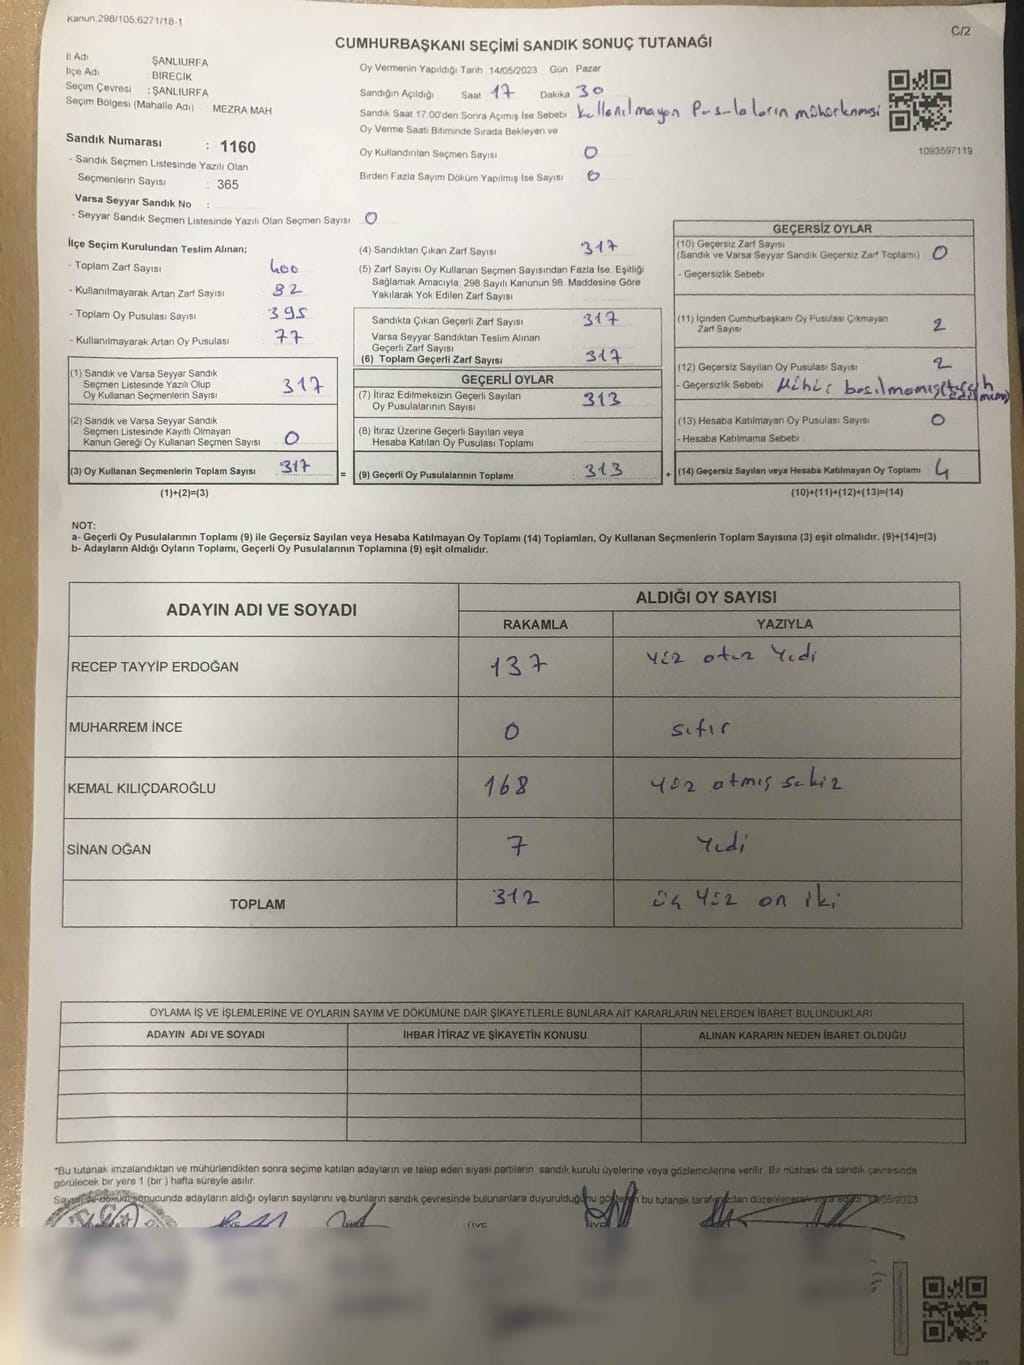 Kanun.298/105.6271/18-1
C/2
CUMHURBAŞKANI SEÇİMİ SANDIK SONUÇ TUTANAĞI
İl Adı ŞANLIURFA
İlçe Adı BİRECİK
Seçim Çevresi : ŞANLIURFA
Seçim Bölgesi (Mahalle Adı) MEZRA MAH
Oy Vermenin Yapıldığı Tarih 14/05/2023 Gün : Pazar
Sandığın Açıldığı Saat 17 Dakika 30
Sandık Saat 17.00'den Sonra Açımış İse Sebebi kullanılmayan Pusulaların mühürlenmesi
Oy Verme Saati Bitiminde Sırada Bekleyen ve
Oy Kullandırılan Seçmen Sayısı 0
Birden Fazla Sayım Döküm Yapılmış İse Sayısı 0
1093597119
Sandık Numarası : 1160
- Sandık Seçmen Listesinde Yazılı Olan
Seçmenlerin Sayısı : 365
Varsa Seyyar Sandık No :
- Seyyar Sandık Seçmen Listesinde Yazılı Olan Seçmen Sayısı 0
İlçe Seçim Kurulundan Teslim Alınan;
- Toplam Zarf Sayısı 400
- Kullanılmayarak Artan Zarf Sayısı 82
- Toplam Oy Pusulası Sayısı 395
- Kullanılmayarak Artan Oy Pusulası 77
(1) Sandık ve Varsa Seyyar Sandık
Seçmen Listesinde Yazılı Olup
Oy Kullanan Seçmenlerin Sayısı 317
(2) Sandık ve Varsa Seyyar Sandık
Seçmen Listesinde Kayıtlı Olmayan
Kanun Gereği Oy Kullanan Seçmen Sayısı 0
(3) Oy Kullanan Seçmenlerin Toplam Sayısı 317 =
(1)+(2)=(3)
(4) Sandıktan Çıkan Zarf Sayısı 317
(5) Zarf Sayısı Oy Kullanan Seçmen Sayısından Fazla İse, Eşitliği
Sağlamak Amacıyla, 298 Sayılı Kanunun 98. Maddesine Göre
Yakılarak Yok Edilen Zarf Sayısı
Sandıkta Çıkan Geçerli Zarf Sayısı 317
Varsa Seyyar Sandıktan Teslim Alınan
Geçerli Zarf Sayısı
(6) Toplam Geçerli Zarf Sayısı 317
GEÇERLİ OYLAR
(7) İtiraz Edilmeksizin Geçerli Sayılan
Oy Pusulalarının Sayısı 313
(8) İtiraz Üzerine Geçerli Sayılan veya
Hesaba Katılan Oy Pusulası Toplamı
(9) Geçerli Oy Pusulalarının Toplamı : 313 +
GEÇERSİZ OYLAR
(10) Geçersiz Zarf Sayısı
(Sandık ve Varsa Seyyar Sandık Geçersiz Zarf Toplamı) 0
- Geçersizlik Sebebi
(11) İçinden Cumhurbaşkanı Oy Pusulası Çıkmayan
Zarf Sayısı 2
(12) Geçersiz Sayılan Oy Pusulası Sayısı 2
- Geçersizlik Sebebi Mühür basılmamış
(13) Hesaba Katılmayan Oy Pusulası Sayısı 0
- Hesaba Katılmama Sebebi
(14) Geçersiz Sayılan veya Hesaba Katılmayan Oy Toplamı 4
(10)+(11)+(12)+(13)=(14)
NOT:
a- Geçerli Oy Pusulalarının Toplamı (9) ile Geçersiz Sayılan veya Hesaba Katılmayan Oy Toplamı (14) Toplamları, Oy Kullanan Seçmenlerin Toplam Sayısına (3) eşit olmalıdır. (9)+(14)=(3)
b- Adayların Aldığı Oyların Toplamı, Geçerli Oy Pusulalarının Toplamına (9) eşit olmalıdır.
ADAYIN ADI VE SOYADI
ALDIĞI OY SAYISI
RAKAMLA YAZIYLA
RECEP TAYYİP ERDOĞAN 137 yüz otuz yedi
MUHARREM İNCE 0 sıfır
KEMAL KILIÇDAROĞLU 168 yüz atmış sekiz
SİNAN OĞAN 7 Yedi
TOPLAM 312 üç yüz on iki
OYLAMA İŞ VE İŞLEMLERİNE VE OYLARIN SAYIM VE DÖKÜMÜNE DAİR ŞİKAYETLERLE BUNLARA AİT KARARLARIN NELERDEN İBARET BULUNDUKLARI
ADAYIN ADI VE SOYADI İHBAR İTİRAZ VE ŞİKAYETİN KONUSU ALINAN KARARIN NEDEN İBARET OLDUĞU
*Bu tutanak imzalandıktan ve mühürlendikten sonra seçime katılan adayların ve talep eden siyasi partilerin sandık kurulu üyelerine veya gözlemcilerine verilir. Bir nüshası da sandık çevresinde
görülecek bir yere 1 (bir ) hafta süreyle asılır.
Sayım ve döküm sonucunda adayların aldığı oyların sayılarını ve bunların sandık çevresinde bulunanlara duyurulduğunu gösteren bu tutanak tarafımızdan düzenlenerek
ÜYE